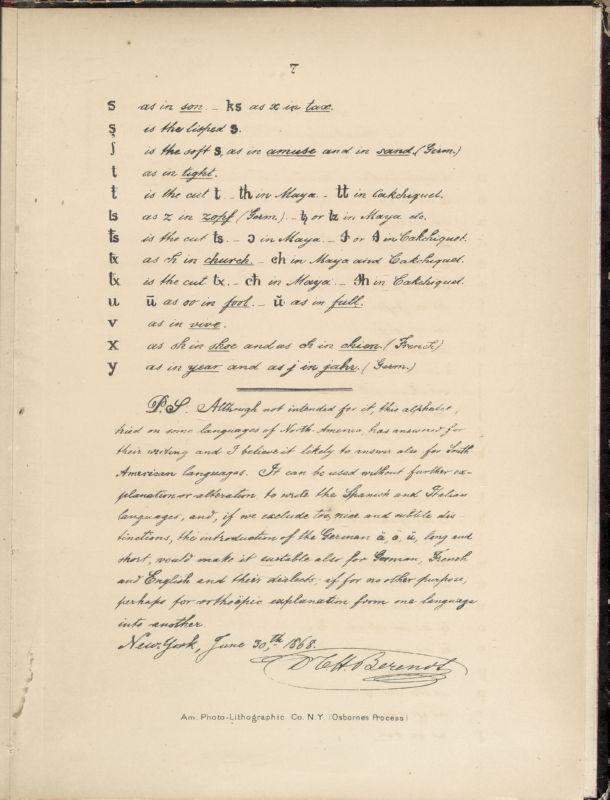 7
s as in son. _ ks as x in tax.
ş is the lisped s.
ʃ is the soft s, as in amuse and in sand. (Germ.)
t as in tight.
ŧ is the cut t. _ th in Maya. _ tt in Cakchiquel.
ts as z in zopf (Germ.). _ ꜩ or tz in Maya etc.
ŧs is the cut ts. _ ɔ in Maya. _ or in Cakchiquel.
tx as ch in church. _ ch in Maya and Cakchiquel.
ŧx is the cut tx. _ cħ in Maya. _ in Cakchiquel.
u ū as oo in fool. _ ŭ as in full.
v as in vive.
x as sh in shoe and as ch in chien. (French)
y as in year and as j in jahr. (Germ.)
P.S. Although not intended for it, this alphabet,
tried on some languages of North-America, has answered for
their writing and I believe it likely to answer also for South
American languages. It can be used without further ex-
planation or alteration to write the Spanish and Italian
languages, and, if we exclude too nice and subtile dis-
tinctions, the introduction of the German ä, ö, ü, long and
short, would make it suitable also for German, French
and English and their dialects; if for no other purpose,
perhaps for orthoëpic explanation form one language
into another.
New-York, June 30,th 1868.
Dr C. H. Berendt
Am. Photo-Lithographic Co. N.Y. (Osborne's Process)